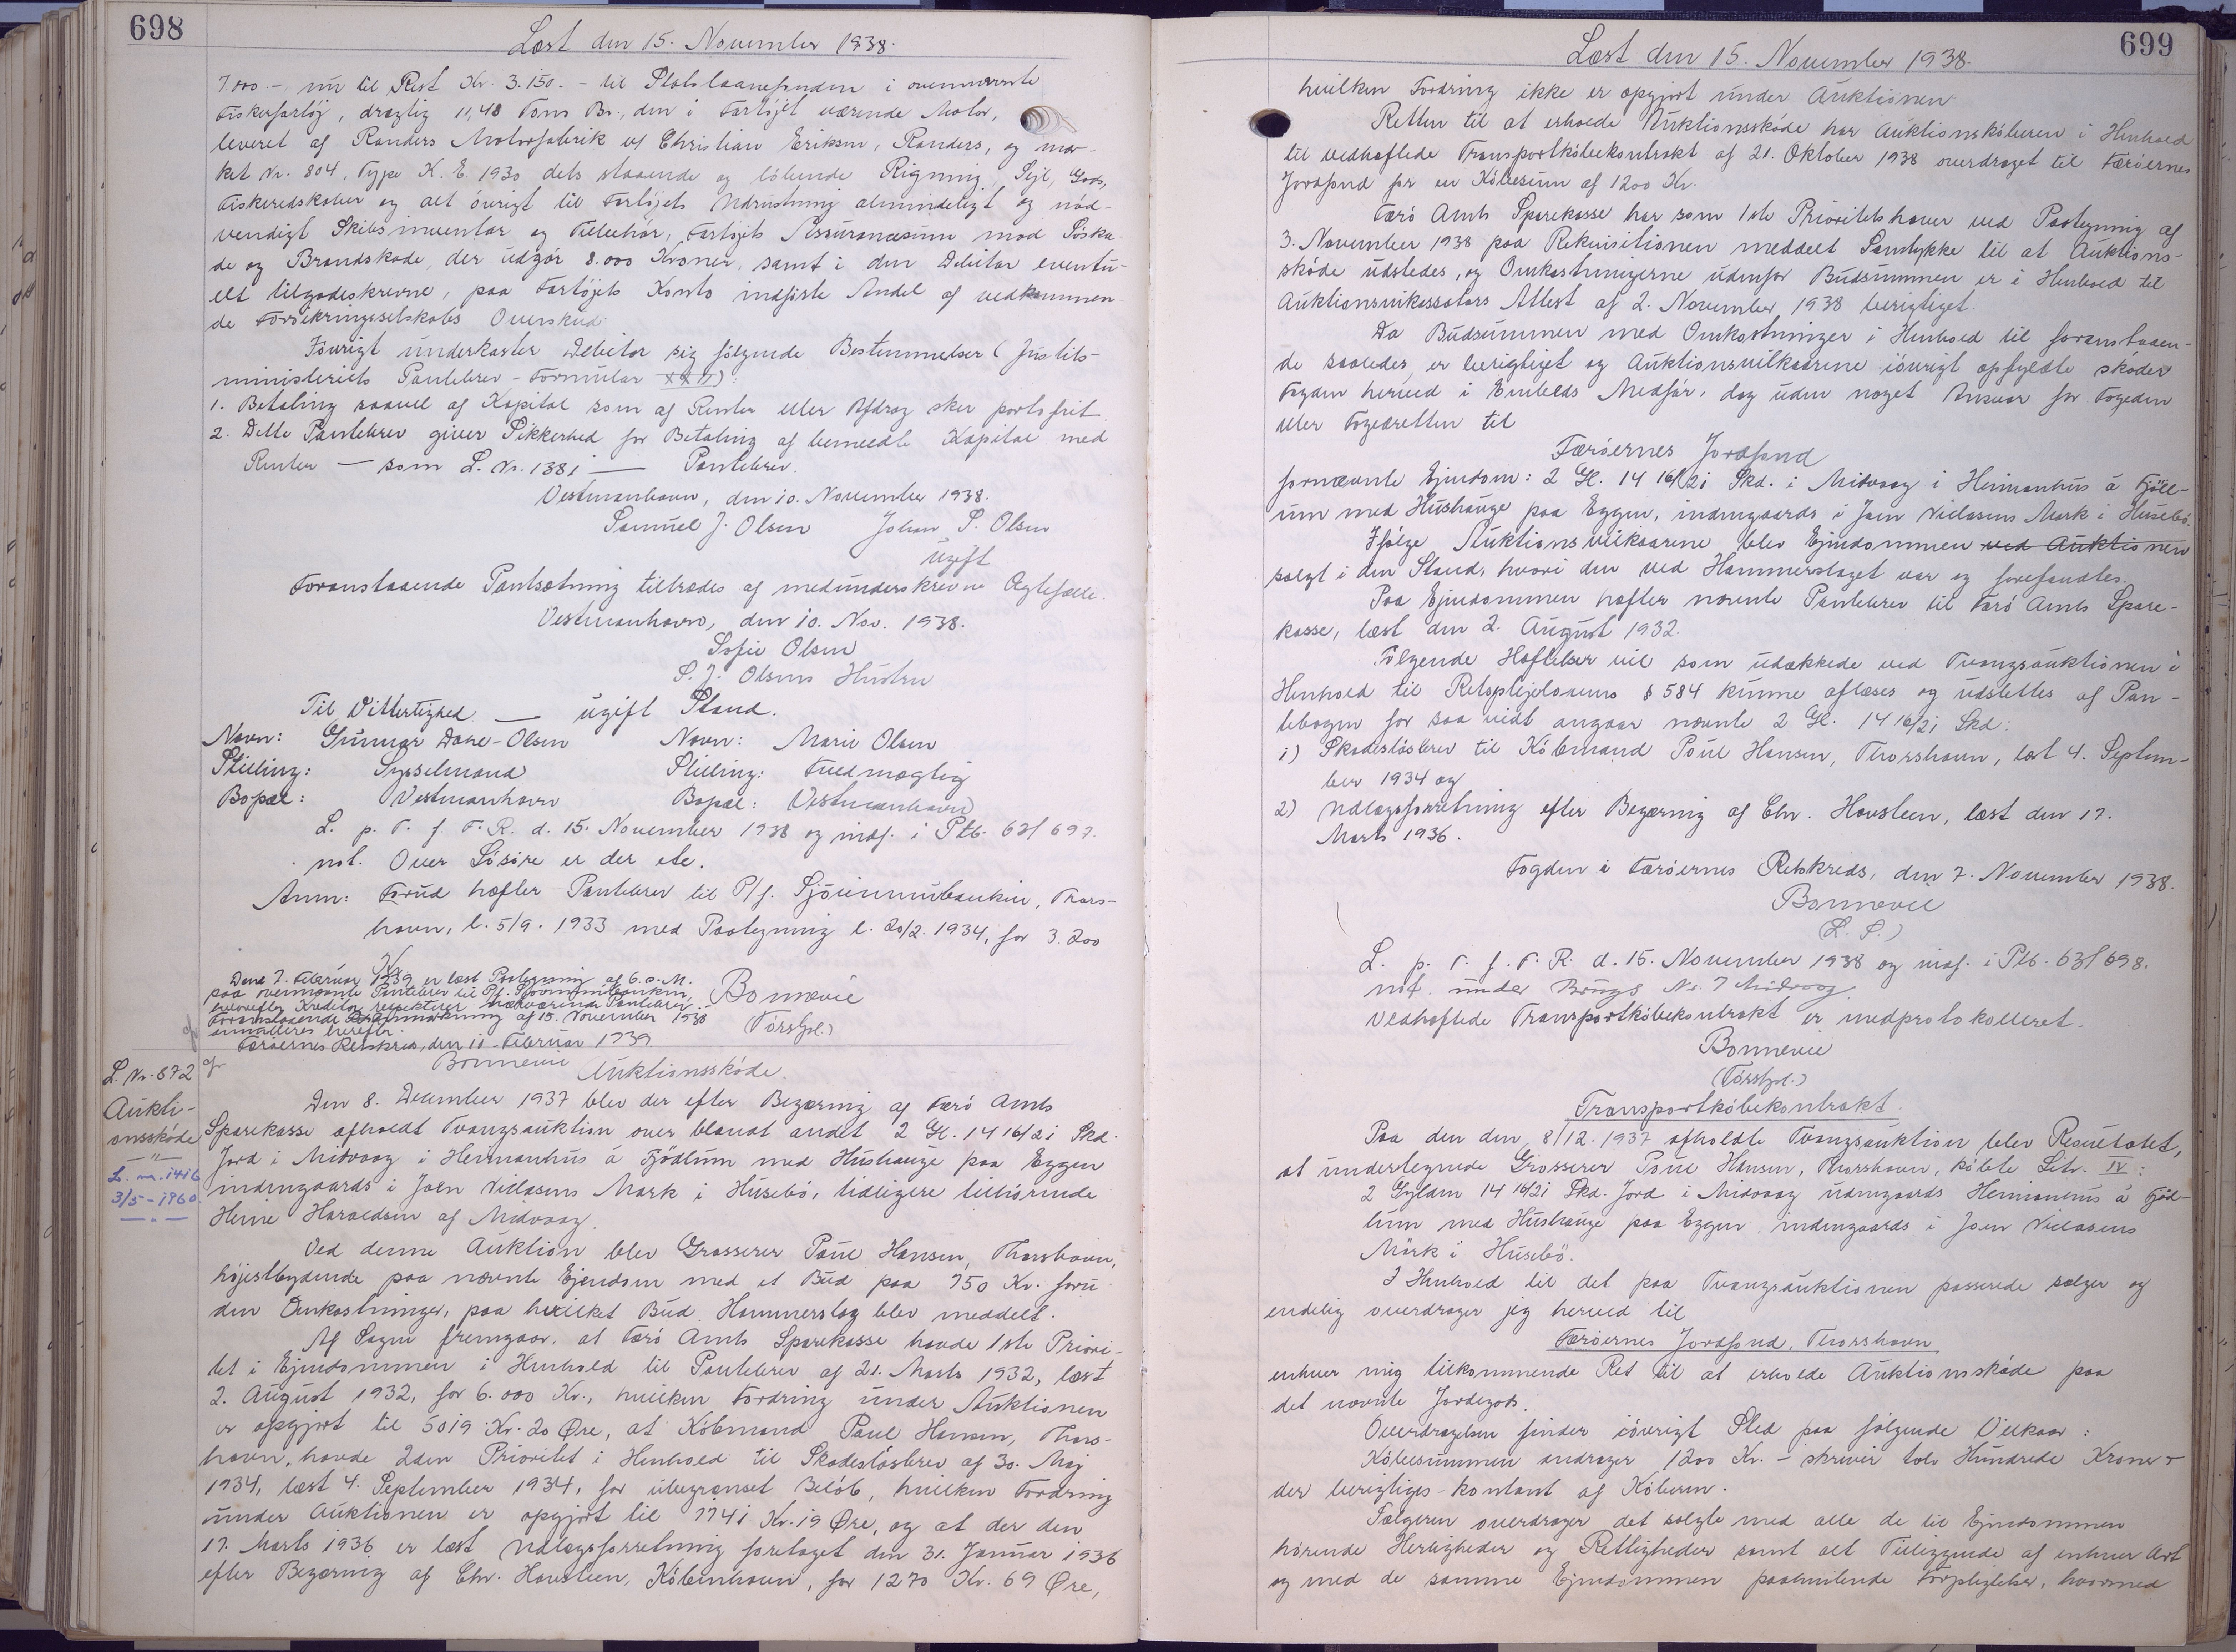 698
Læst den 15. November 1938.
7.000.- nu til Rest Kr. 3.150.- til Statslaanefonden i ovennævnte
Fiskerfartøj, drægtig 11,48 Tons Br., den i Fartøjet værende Motor,
leveret af Randers Motorfabrik v/ Christian Eriksen, Randers, og mær-
ket Nr. 804, Type K. E. 1930 dets staaende og løbende Rigning, Sejl, Gods,
Fiskeredskaber og alt øvrigt til Fartøjets Udrustning almindeligt og nød-
vendigt Skibsinventar og Tilbehør, Fartøjets Assurancesum mod Søska-
de og Brandskade, der udgør 8.000 Kroner, samt i den Debitor eventu-
elt tilgodeskrevne, paa Fartøjets Konto indførte Andel af vedkommen-
de Forsikringsselskabs Overskud.
Iøvrigt underkaster Debitor sig følgende Bestemmelser (Justits-
ministeriets Pantebrev-Formular
1. Betaling saavel af Kapital som af Renter eller Afdrag sker portofrit.
2. Dette Pantebrev giver Sikkerhed for Betaling af bemeldte Kapital med
Renter — som L. Nr. 1381 — Pantebrev.
Vestmanhavn, den 10. November 1938.
Samuel J. Olsen Johan S. Olsen
ugift
Foranstaaende Pantsætning tiltrædes af medunderskrevne Ægtefælle.
Vestmanhavn, den 10. Nov. 1938.
Sofie Olsen
S. J. Olsens Hustru
Til Vitterlighed — ugift Stand.
Navn: Gunnar Dahl-Olsen Navn: Marie Olsen
Stilling: Sysselmand Stilling: Fuldmægtig
Bopæl: Vestmanhavn Bopæl: Vestmanhavn
L. p. T. f. F. R. d. 15. November 1938 og indf. i Ptb. 63/697.
not. Over Løsøre er der etc.
Anm: Forud hæfter Pantebrev til P/f. Sjóvinnubankin, Thors-
havn, l. 5/9. 1933 med Paategning l. 20/2. 1934, for 3.200
Kr.
Bonnevie
(Törsfol.)
Den 7. Februar 1939 er læst Paategning af 6. s. M.
paa ovennævnte Pantebrev til P/f. Sjóvinnubankin,
hvorefter Kreditor respekterer nærværende Pantebrev.
Foranstaaende Anmærkning af 15. November 1938
annulleres herefter.
Færøernes Retskreds, den 10. Februar 1939.
Bonnevie
L. Nr. 872
Aukti-
onsskøde
L. nr. 1416
3/5-1960
Auktionsskøde.
Den 8. December 1937 blev der efter Begæring af Færø Amts
Sparekasse afholdt Tvangsauktion over blandt andet 2 Gl. 14 16/21 Skd.
Jord i Midvaag i Heimanhus á Fjødlum med Hushauge paa Eggen
indengaards i Joen Niclasens Mark i Husebø, tidligere tilhørende
Heine Haraldsen af Midvaag.
Ved denne Auktion blev Grosserer Poul Hansen, Thorshavn,
højestbydende paa nævnte Ejendom med et Bud paa 750 Kr. foru-
den Omkostninger, paa hvilket Bud Hammerslag blev meddelt.
Af Sagen fremgaar, at Færø Amts Sparekasse havde 1ste Priori-
tet i Ejendommen i Henhold til Pantebrev af 21. Marts 1932, læst
2. August 1932, for 6.000 Kr., hvilken Fordring under Auktionen
er opgjort til 5019 Kr. 20 Øre, at Købmand Poul Hansen, Thors-
havn, havde 2den Prioritet i Henhold til Skadesløsbrev af 30. Maj
1934, læst 4. September 1934, for ubegrænset Beløb, hvilken Fordring
under Auktionen er opgjort til 7741 Kr. 19 Øre, og at der den
17. Marts 1936 er læst Udlægsforretning foretaget den 31. Januar 1936
efter Begæring af Chr. Havsteen, København, for 1270 Kr. 69 Øre,
699
Læst den 15. November 1938.
hvilken Fordring ikke er opgjort under Auktionen.
Retten til at erholde Auktionsskøde har Auktionskøberen i Henhold
til vedhæftede Transportkøbekontrakt af 21. Oktober 1938 overdraget til Færøernes
Jordfond for en Købesum af 1200 Kr.
Færø Amts Sparekasse har som 1ste Prioritetshaver ved Paategning af
3. November 1938 paa Rekvisitionen meddelt Samtykke til at Auktions-
skøde udstedes, og Omkostningerne udenfor Budsummen er i Henhold til
Auktionsinkassators Attest af 2. November 1938 berigtiget.
Da Budsummen med Omkostninger i Henhold til foranstaaen-
de saaledes er berigtiget og Auktionsvilkaarene iøvrigt opfyldte skøder
Fogden herved i Embeds Medfør, dog uden noget Ansvar for Fogeden
eller Fogedretten til
Færøernes Jordfond
fornævnte Ejendom: 2 Gl. 14 16/21 Skd. i Midvaag i Heimanhus á Fjöll-
um med Hushauge paa Eggen, indengaards i Joen Niclasens Mark i Husebø.
Ifølge Auktionsvilkaarene blev Ejendommen ved Auktionen
solgt i den Stand, hvori den ved Hammerslaget var og forefandtes.
Paa Ejendommen hæfter nævnte Pantebrev til Færø Amts Spare-
kasse, læst den 2. August 1932.
Følgende Hæftelser vil som udækkede ved Tvangsauktionen i
Henhold til Retsplejelovens § 584 kunne aflæses og udslettes af Pan-
tebogen for saa vidt angaar nævnte 2 Gl. 14 16/21 Skd:
1) Skadesløsbrev til Købmand Poul Hansen, Thorshavn, læst 4. Septem-
ber 1934 og
2) Udlægsforretning efter Begæring af Chr. Havsteen, læst den 17.
Marts 1936.
Fogden i Færøernes Retskreds, den 7. November 1938.
Bonnevie
(L. S.)
L. p. T. f. F. R. d. 15. November 1938 og indf. i Ptb. 63/698.
not. under Brugs Nr. 7 Midvaag.
Vedhæftede Transportkøbekontrakt er medprotokolleret.
Bonnevie
(Törsfol.)
Transportkøbekontrakt.
Paa den den 8/12. 1937 afholdte Tvangsauktion blev Resultatet,
at undertegnede Grosserer Poul Hansen, Thorshavn, købte Litr. IV:
2 Gylden 14 16/21 Skd. Jord i Midvaag udengaards Heimanhus á Fjød-
lum med Hushauge paa Eggen indengaards i Joen Niclasens
Mark i Husebø.
I Henhold til det paa Tvangsauktionen passerede sælger og
endelig overdrager jeg herved til
Færøernes Jordfond, Thorshavn
enhver mig tilkommende Ret til at erholde Auktionsskøde paa
det nævnte Jordegods.
Overdragelsen finder iøvrigt Sted paa følgende Vilkaar:
Købesummen andrager 1200 Kr. - skriver tolv Hundrede Kroner -
der berigtiges kontant af Køberen.
Sælgeren overdrager det solgte med alle de til Ejendommen
hørende Herligheder og Rettigheder samt alt Tilliggende af enhver Art
og med de samme Ejendommen paahvilende Forpligtelser, hvormed